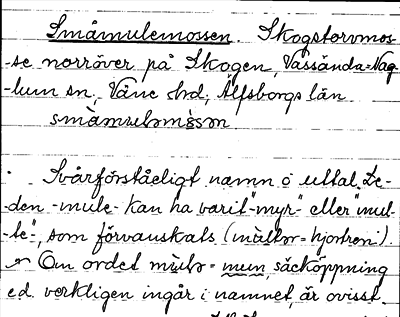 Småmulemossen. Skogstorvmos-
-se norröver på Skogen, Vassända=Nag-
-lum sn, Väne hd, Älfsborgs län
smàmulɘmɘ̀sɘn
Svårförståeligt namn o uttal. Le-
den -mule- kan ha varit "myr-" eller "mul-
-te", som förvanskats (mùltɘr = hjortron).
Om ordet mùlɘ = mun, säcköppning
e.d. verkligen ingår i namnet, är ovisst.